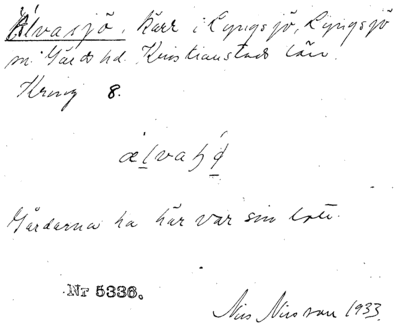 Älvasjö. Kärr i Lyngsjö, Lyngsjö
sn Gärds hd. Kristianstads län.
Kring 8.
älvaꜧǿ
Gårdarna ha här var sin lott.
Nr 5336.
Nils Nilsson 1933.